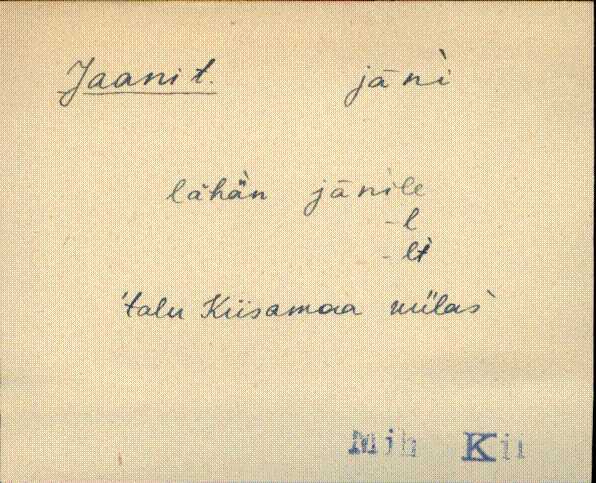 Jaani t. jāni̇̀
lähän jānile
-l
-lt̀
'talu Kiisamaa külas'
Mih Kil